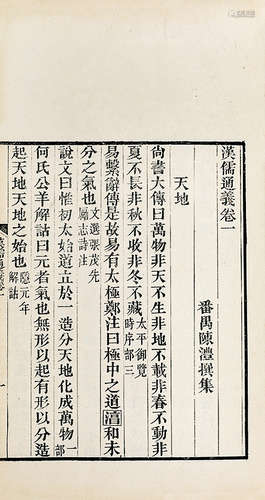 漢儒通義卷一
番禺陳澧撰集
天地
尙書大傳曰萬物非天不生非地不載非春不動非
夏不長非秋不收非冬不藏太平御覽時序部三
易繫辭傳是故易有太極鄭注曰極中之道湻和未
分之氣也文選張茂先勵志詩注
說文曰惟初太始道立於一造分天地化成萬物一部
何氏公羊解詁曰元者氣也無形以起有形以分造
起天地天地之始也隱元年解詁